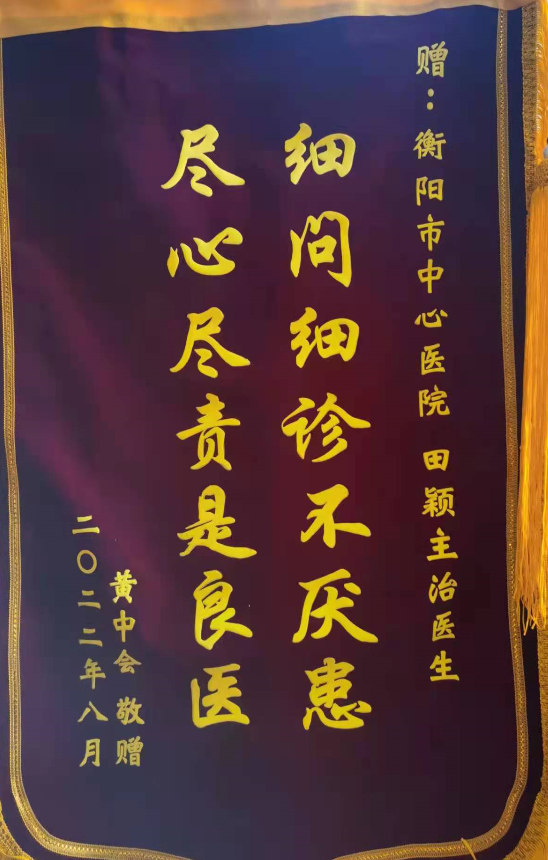 赠：衡阳市中心医院 田颖主治医生
细问细诊不厌患
尽心尽责是良医
黄中会 敬赠
二〇二二年八月